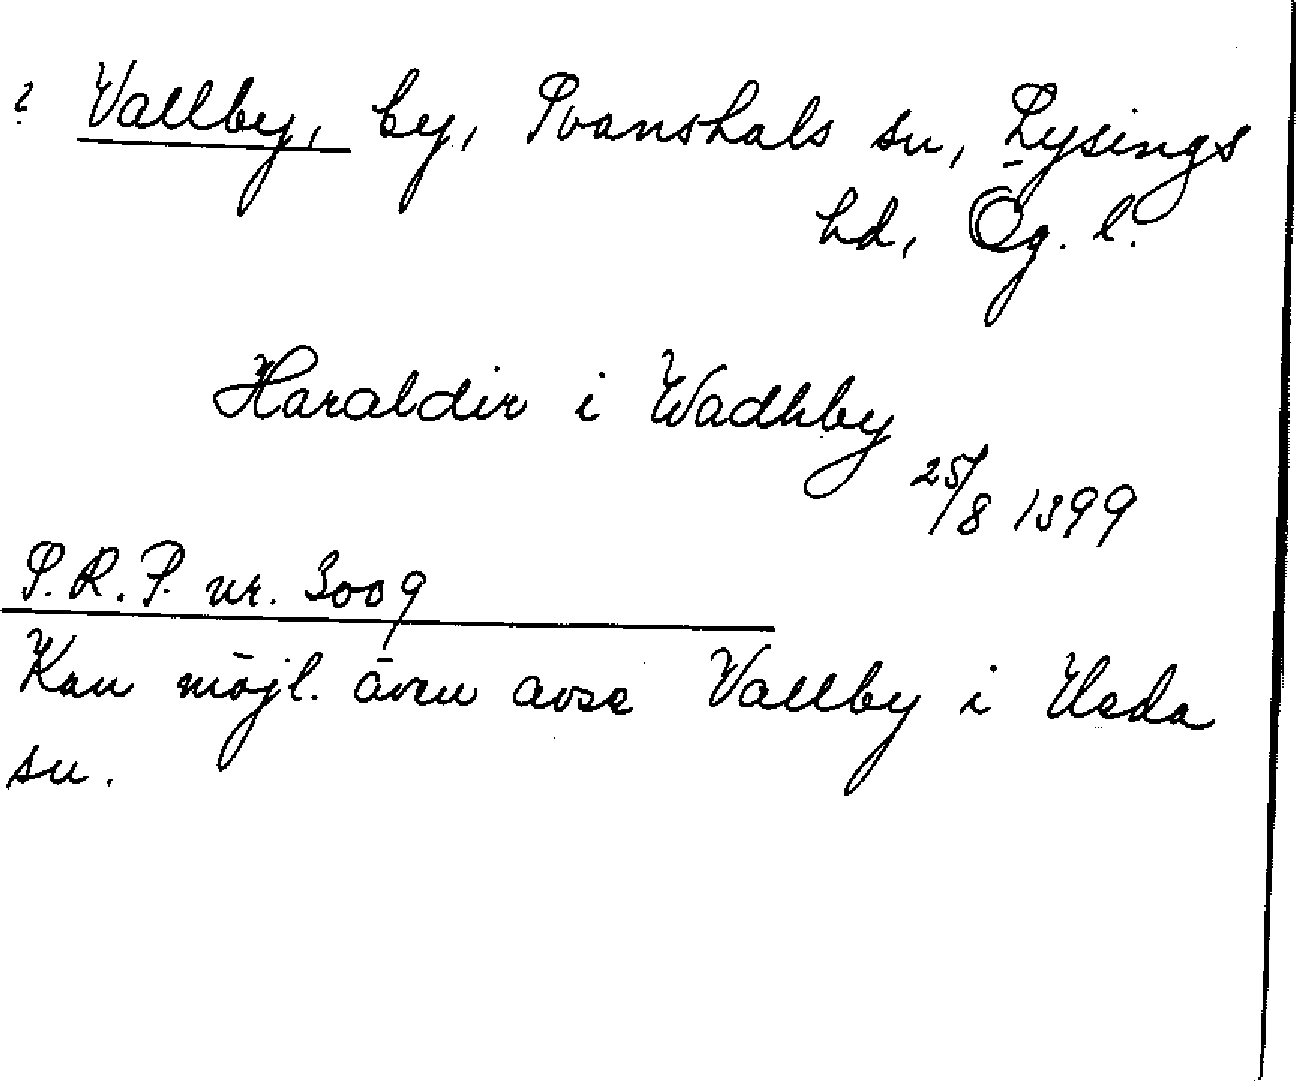 ? Vallby, by, Svanshals sn, Lysings
hd, Ög. l.
Haraldir i Wadhby
25/8 1399
S.R.P. nr. 3009
Kan möjl. även avse Vallby i Heda
sn.